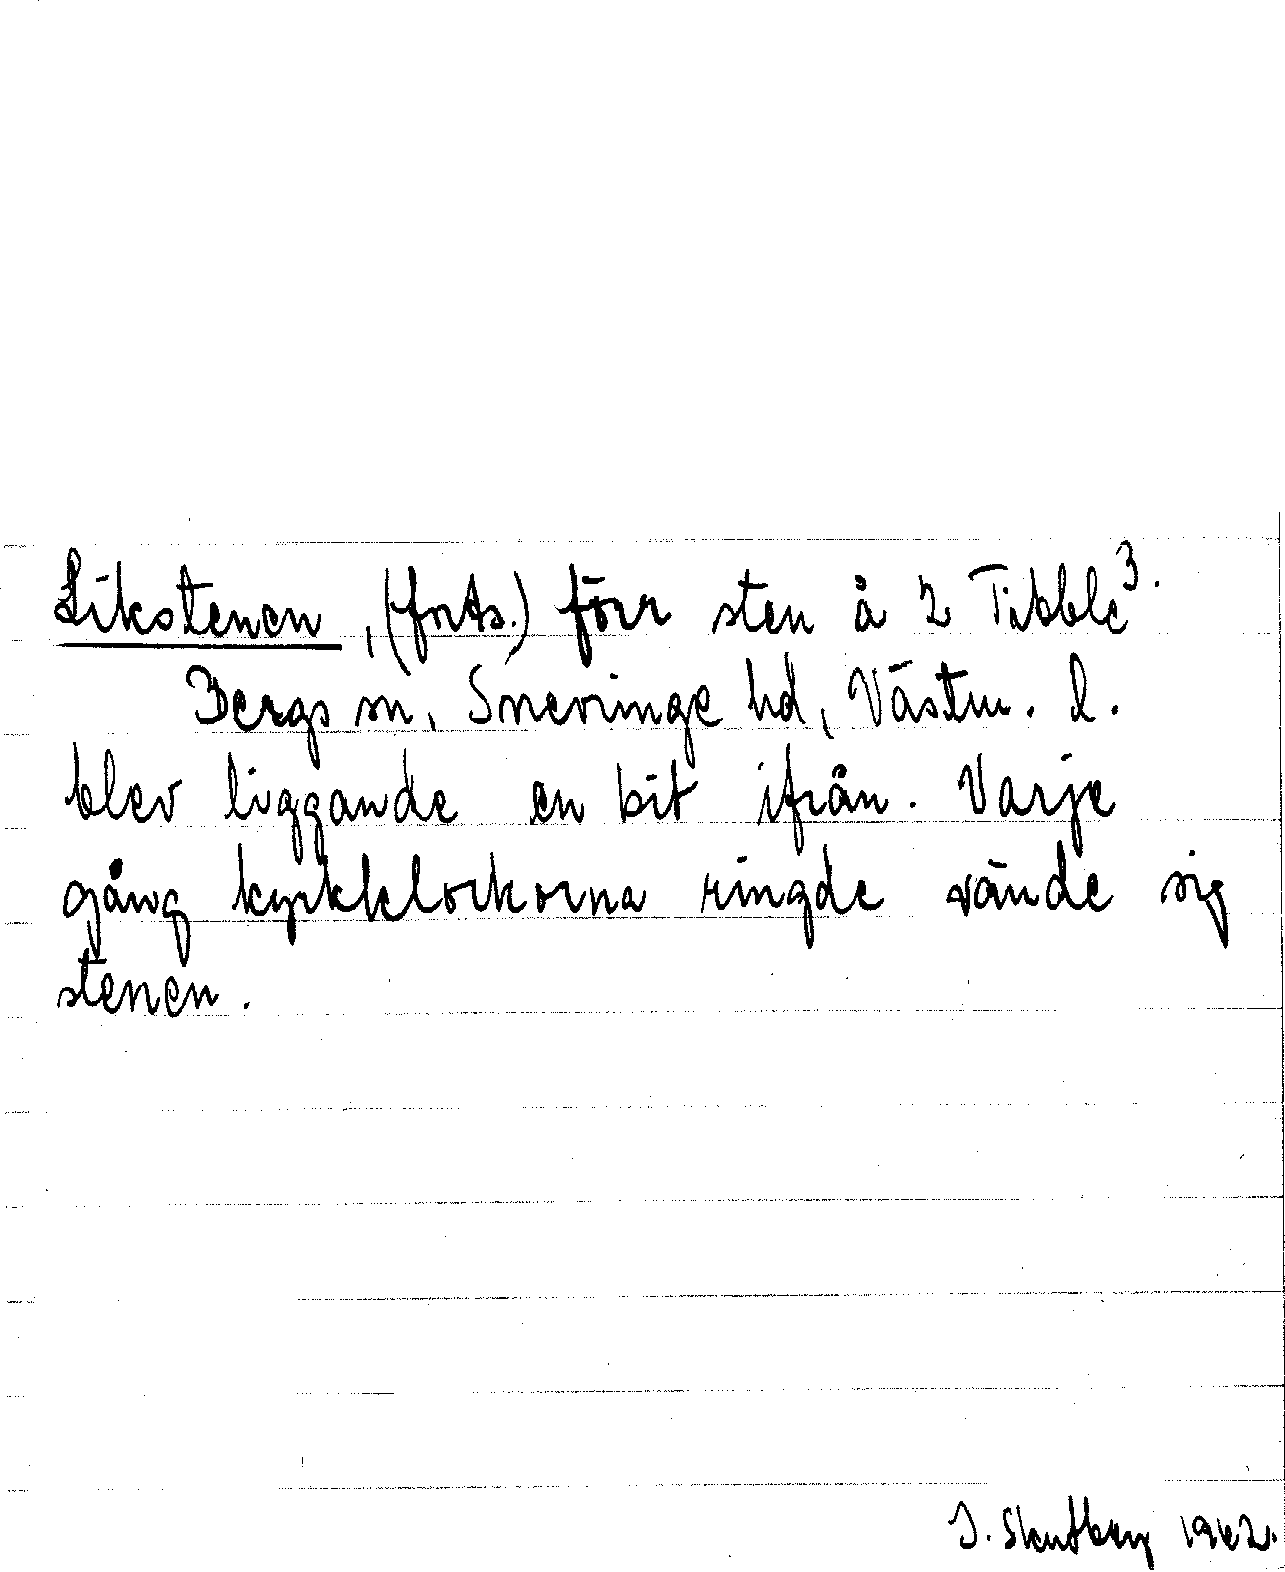 Likstenen, (forts.) förr sten å 2 Tibble³.
Bergs sn, Snevringe hd, Västm. l.
blev liggande en bit ifrån. Varje
gång kyrkklockorna ringde vände sig
stenen.
J. Skutberg 1942.